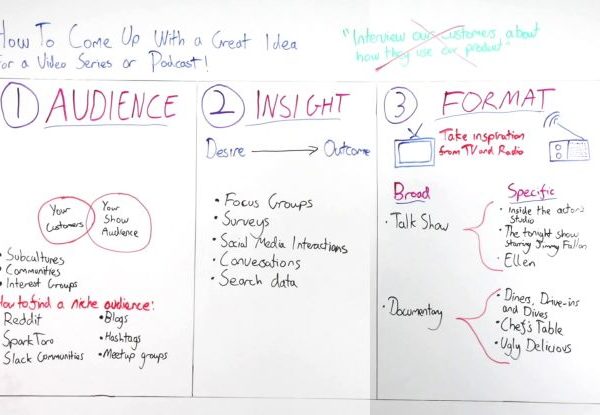 How To Come Up With a Great Idea
For a Video Series or Podcast!
"Interview our customers about
how they use our product"
① AUDIENCE
Your
Customers
Your
Show
Audience
• Subcultures
• Communities
• Interest Groups
How to find a niche audience:
Reddit
SparkToro
Slack Communities
• Blogs
• Hashtags
• Meetup groups
② INSIGHT
Desire → Outcome
• Focus Groups
• Surveys
• Social Media Interactions
• Conversations
• Search data
③ FORMAT
Take inspiration
from TV and Radio
Broad
Specific
• Talk Show
• Inside the actors
Studio
• The tonight show
starring Jimmy Fallon
• Ellen
• Documentary
• Diners, Drive-ins
and Dives
• Chef's Table
• Ugly Delicious